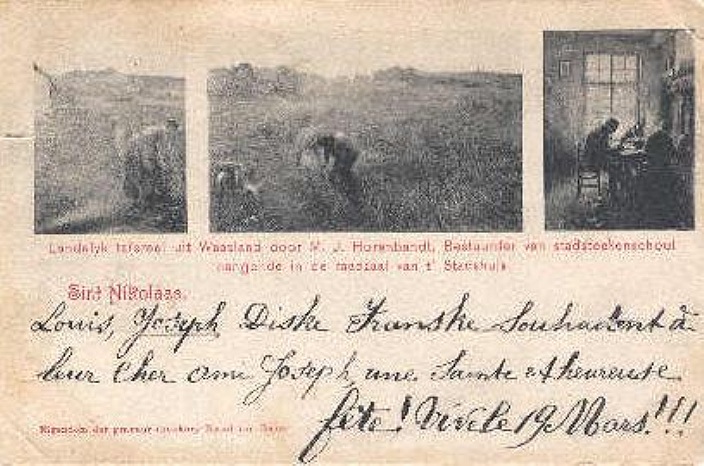 Landelyk tafereel uit Waasland door M. J. Horenbandt, Bestuurder van stadsteekenschool
hangende in de raadzaal van t' Stadhuis
Sint Nikolaas.
Louis, Joseph Diske Franske Souhaitent à
leur Cher ami Joseph, une Sainte et heureuse
fête! Vive le 19 Mars.!!!
Eigendom der